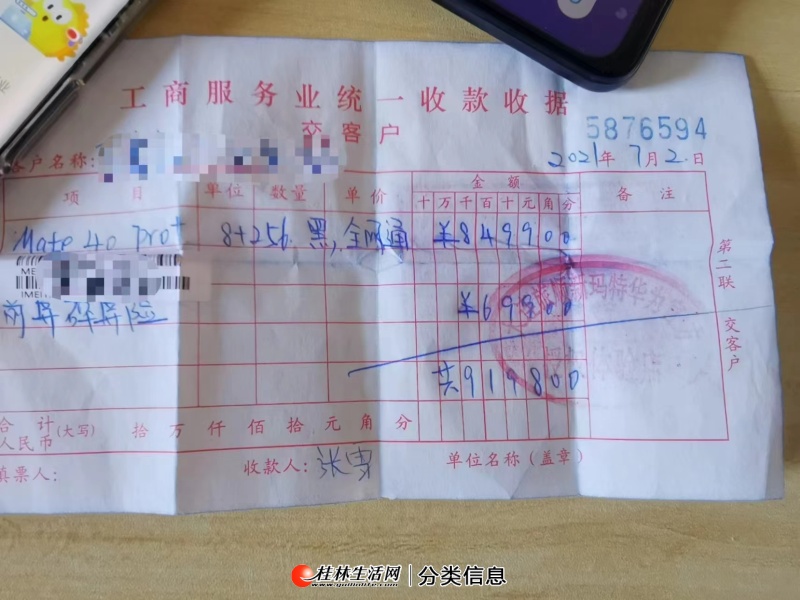 工商服务业统一收款收据
交客户
5876594
客户名称:
2021年7月2日
项 目 单位 数量 单价 金额 备注
十万千百十元角分
Mate 40 pro+ 8+256 黑,全网通 ¥849900
IMEI
前屏碎屏险 ¥69900
共919800
合计 人民币 (大写) 拾 万 仟 佰 拾 元 角 分
填票人: 收款人: 单位名称(盖章)
第二联 交客户
桂林生活网 分类信息
www.guilinlife.com